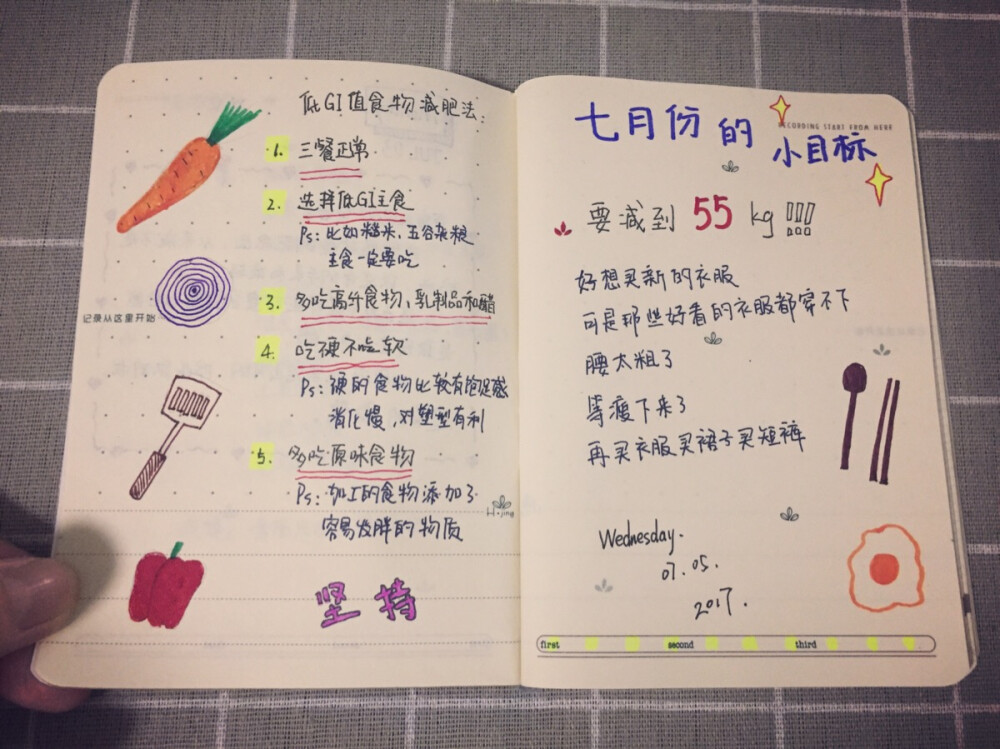 低GI值食物减肥法:
1. 三餐正常
2. 选择低GI主食
Ps: 比如糙米,五谷杂粮
主食一定要吃
记录从这里开始
3. 多吃高纤食物,乳制品和醋
4. 吃硬不吃软
Ps: 硬的食物比较有饱足感
消化慢,对塑型有利
5. 多吃原味食物
Ps: 加工的食物添加了
容易发胖的物质
Hojing
坚持
七月份的
RECORDING START FROM HERE
小目标
要减到 55 kg!!!
好想买新的衣服
可是那些好看的衣服都穿不下
腰太粗了
等瘦下来了
再买衣服买裙子买短裤
Wednesday.
07.05.
2017.
first second third